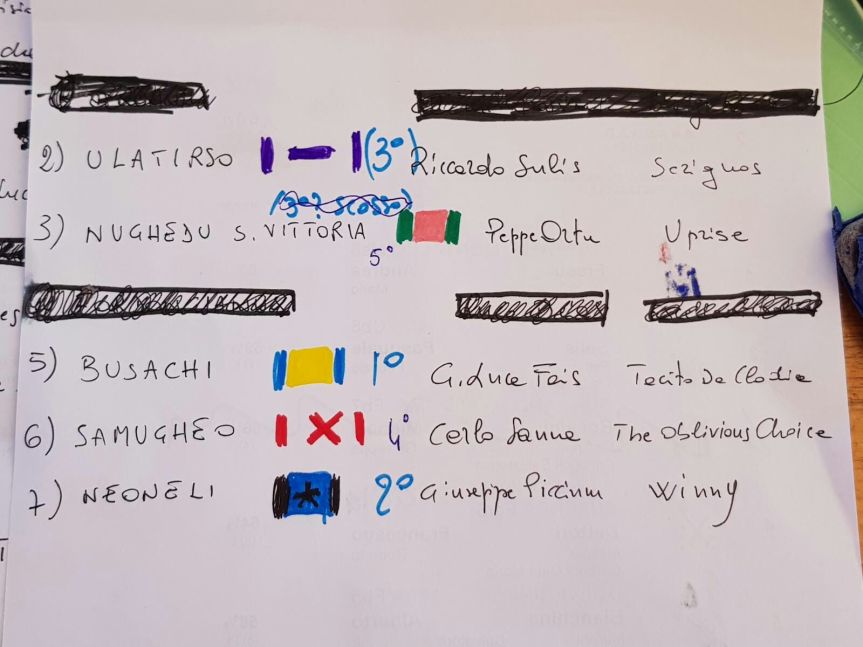 2) ULATIRSO (3° Riccardo Sulis
3) NUGHEDU S. VITTORIA 5° Peppe Ortu Uprise
5) BUSACHI 1° G. Luca Fais Tacito Da Clodia
6) SAMUGHEO 4° Carlo Sanna The Oblivious Choice
7) NEONELI 2° Giuseppe Piccinnu Winny